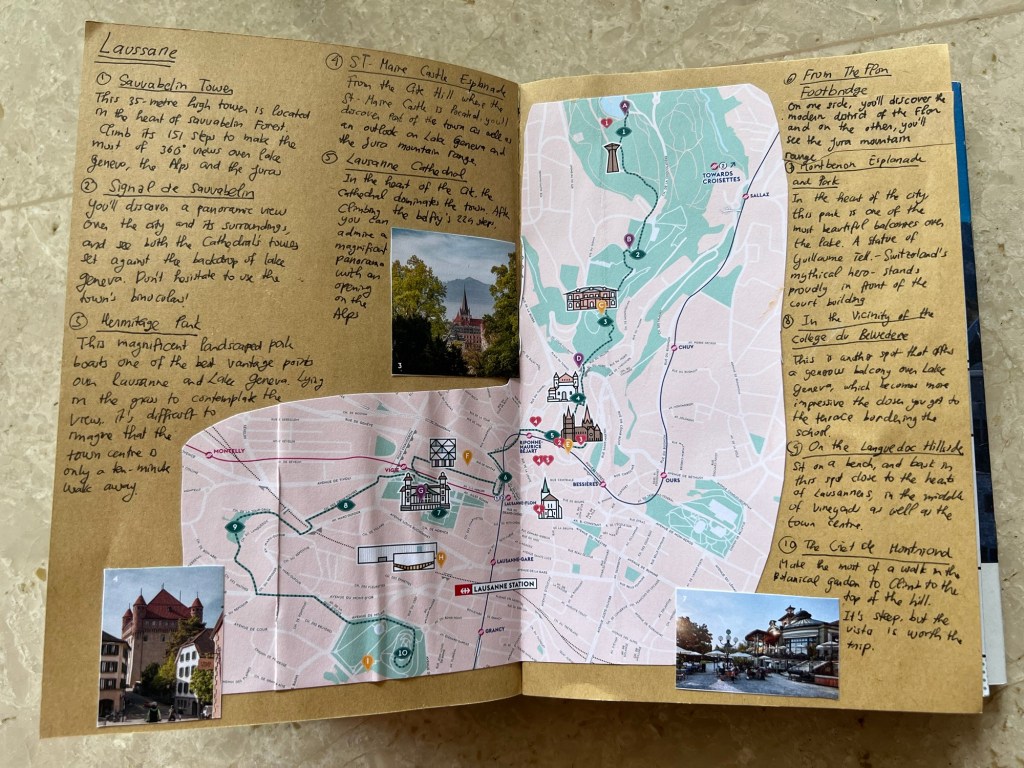 Laussane
① Sauvabelin Tower
This 35-metre high tower is located
in the heart of sauvabelin Forest.
Climb its 151 steps to make the
most of 360° views over lake
Geneva, the Alps and the Jura
② Signal de Sauvabelin
You'll discover a panoramic view
over the city and its surroundings,
and see both the Cathedral's towers
set against the backdrop of lake
geneva. Don't hesitate to use the
town's binoculars!
③ Hermitage Park
This magnificent landscaped park
boasts one of the best vantage points
over Laussanne and Lake Geneva. Lying
in the grass to contemplate the
view, it's difficult to
imagine that the
town centre is
only a ten-minute
walk away.
④ ST-Maire Castle Esplanade
From the Cité Hill where the
St-Maire Castle is located, you'll
discover part of the town as well as
an outlook on Lake Geneva and
the Jura mountain range
⑤ Lausanne Cathedral
In the heart of the Cité, the
Cathedral dominates the town. After
Climbing the belfry's 224 steps,
you can
admire a
magnificent
panorama
with an
opening
on the
Alps
3
4
⑥ From The Flon
Footbridge
On one side, you'll discover the
modern district of the Flon
and on the other, you'll
see the Jura mountain
range
⑦ Montbenon Esplanade
and Park
In the heart of the city
this park is one of the
most beautiful balconies over
the lake. A statue of
Guillaume Tell - Switzerland's
mythical hero - stands
proudly in front of the
court building
⑧ In the Vicinity of the
College du Belvédère
This is another spot that offers
a generous balcony over Lake
Geneva, which becomes more
impressive the closer you get to
the terrace bordering the
school
⑨ On the Languedoc Hillside
Sit on a bench, and bask in
this spot close to the hearts
of Lausanners, in the middle
of vineyard as well as the
town centre.
⑩ The Crêt de Montriond
Make the most of a walk in the
Botanical garden to Climb to the
top of the hill.
It's steep but the
vista is worth the
trip.
A
1
1
TOWARDS
CROISETTES
SALLAZ
B
2
C
3
CHUV
D
4
RIPONNE-
MAURICE
BÉJART
5
E
3
BESSIÈRES
OURS
MONTELLY
VIGIE
F
G
7
6
LAUSANNE-FLON
8
9
H
LAUSANNE-GARE
LAUSANNE STATION
GRANCY
10
I